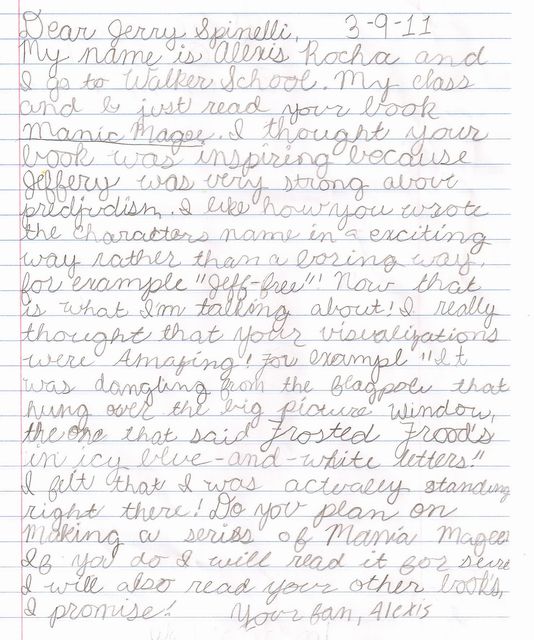 Dear Jerry Spinelli, 3-9-11
My name is Alexis Rocha and
I go to Walker School. My class
and I just read your book
Mania Magee. I thought your
book was inspiring because
Jeffery was very strong about
predjudism. I like how you wrote
the characters name in a exciting
way rather than a boring way,
for example "Jeff-free"! Now that
is what I'm talking about! I really
thought that your visualizations
were Amazing! For exampl "It
was dangling from the flagpole that
hung over the big picture window,
the one that said Frosted Froods
in icy blue-and-white letters!"
I felt that I was actually standing
right there! Do you plan on
Making a series of Mania Magee
If you do I will read it for sure
I will also read your other books,
I promise! Your fan, Alexis